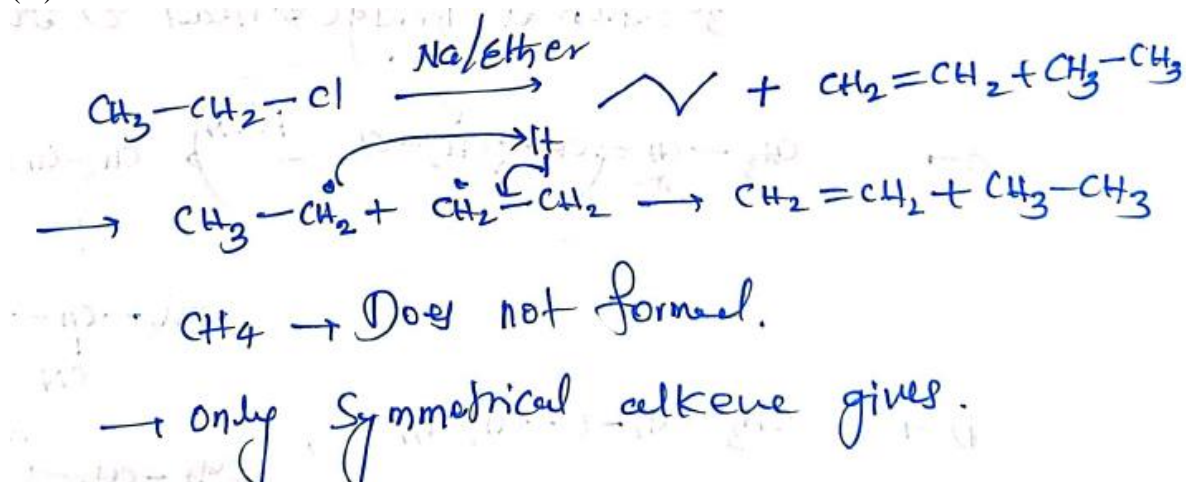 CH3-CH2-Cl Na/Ether → + CH2=CH2+CH3-CH3
→ CH3-CH2• + •CH2-CH2 H → CH2=CH2+CH3-CH3
• CH4 → Does not formed.
→ only symmetrical alkene gives.